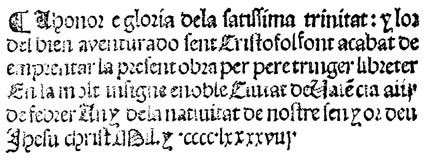 ¶ A honor e gloria dela sātissima trinitat: y lor
del bien aventurado sent Cristofol font acabat de
emprentar la present obra per pere trunger libreter
En la molt insigne e noble Ciutat de Valēcia a iiij
de febrer Any de la nativitat de nostre senyor deu
Jhesu christ M. y cccclxxxxviij